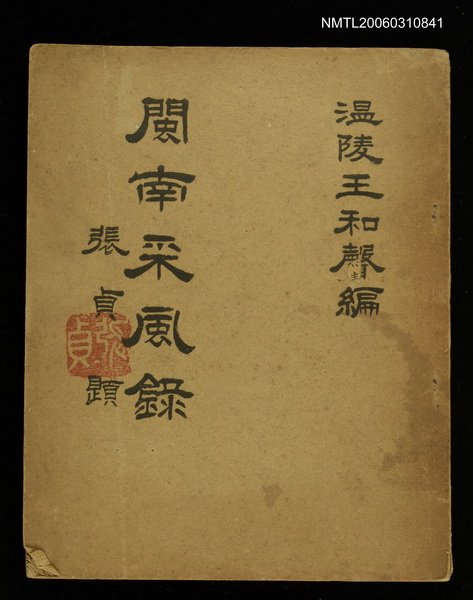 NMTL20060310841
温陵王和聲編
閩南采風錄
張貞題